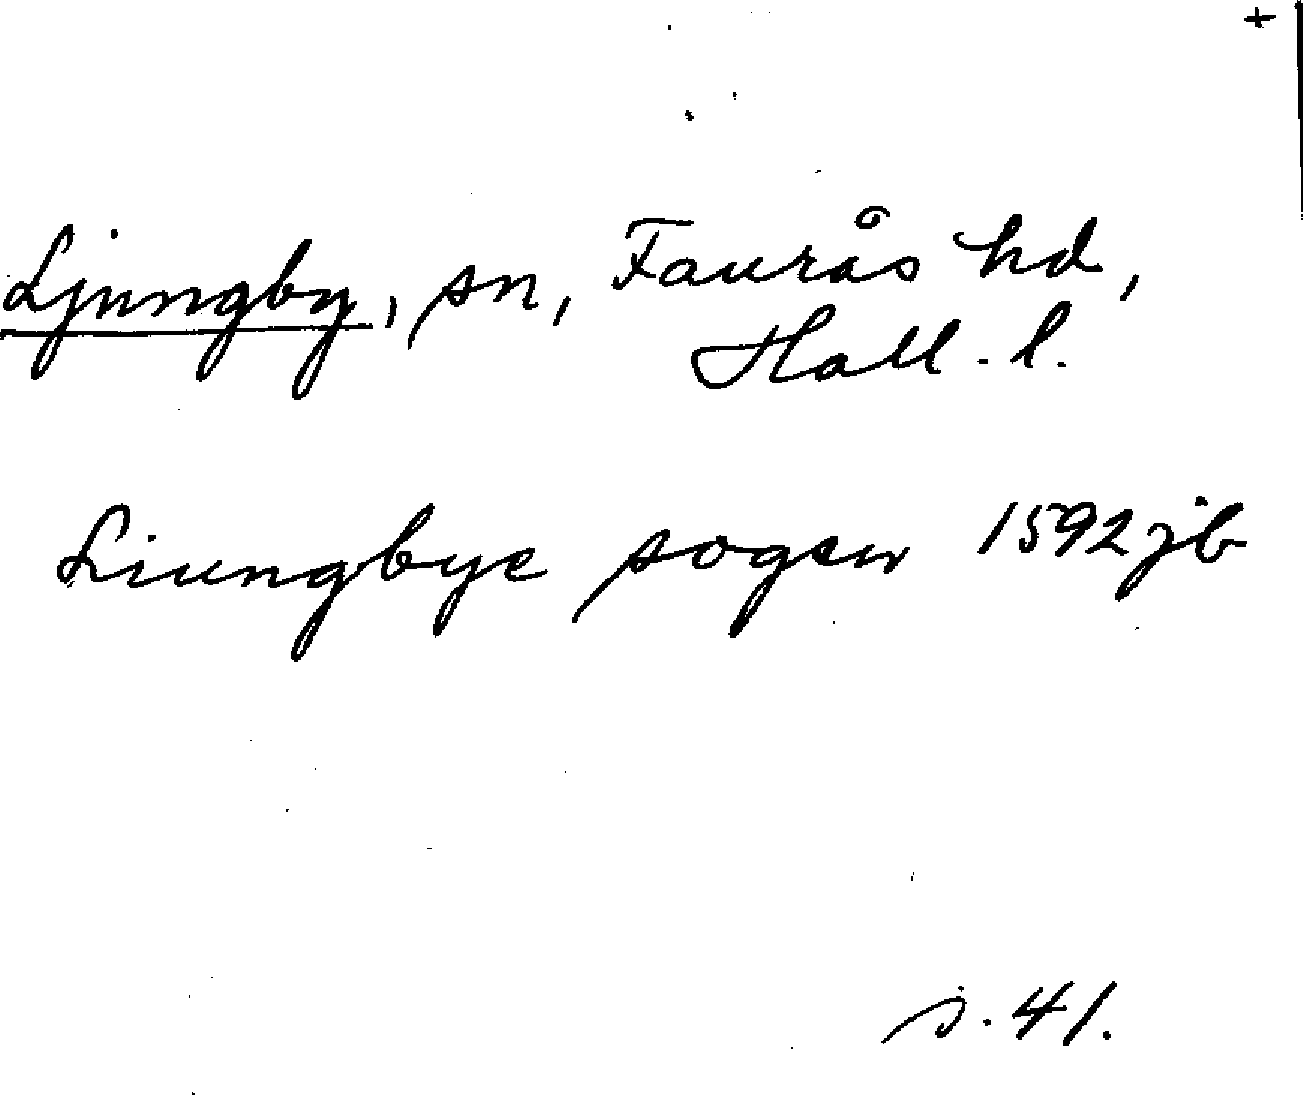 +
Ljungby, sn, Faurås hd,
Hall. l.
Liungbye sogen 1592 jb
s. 41.